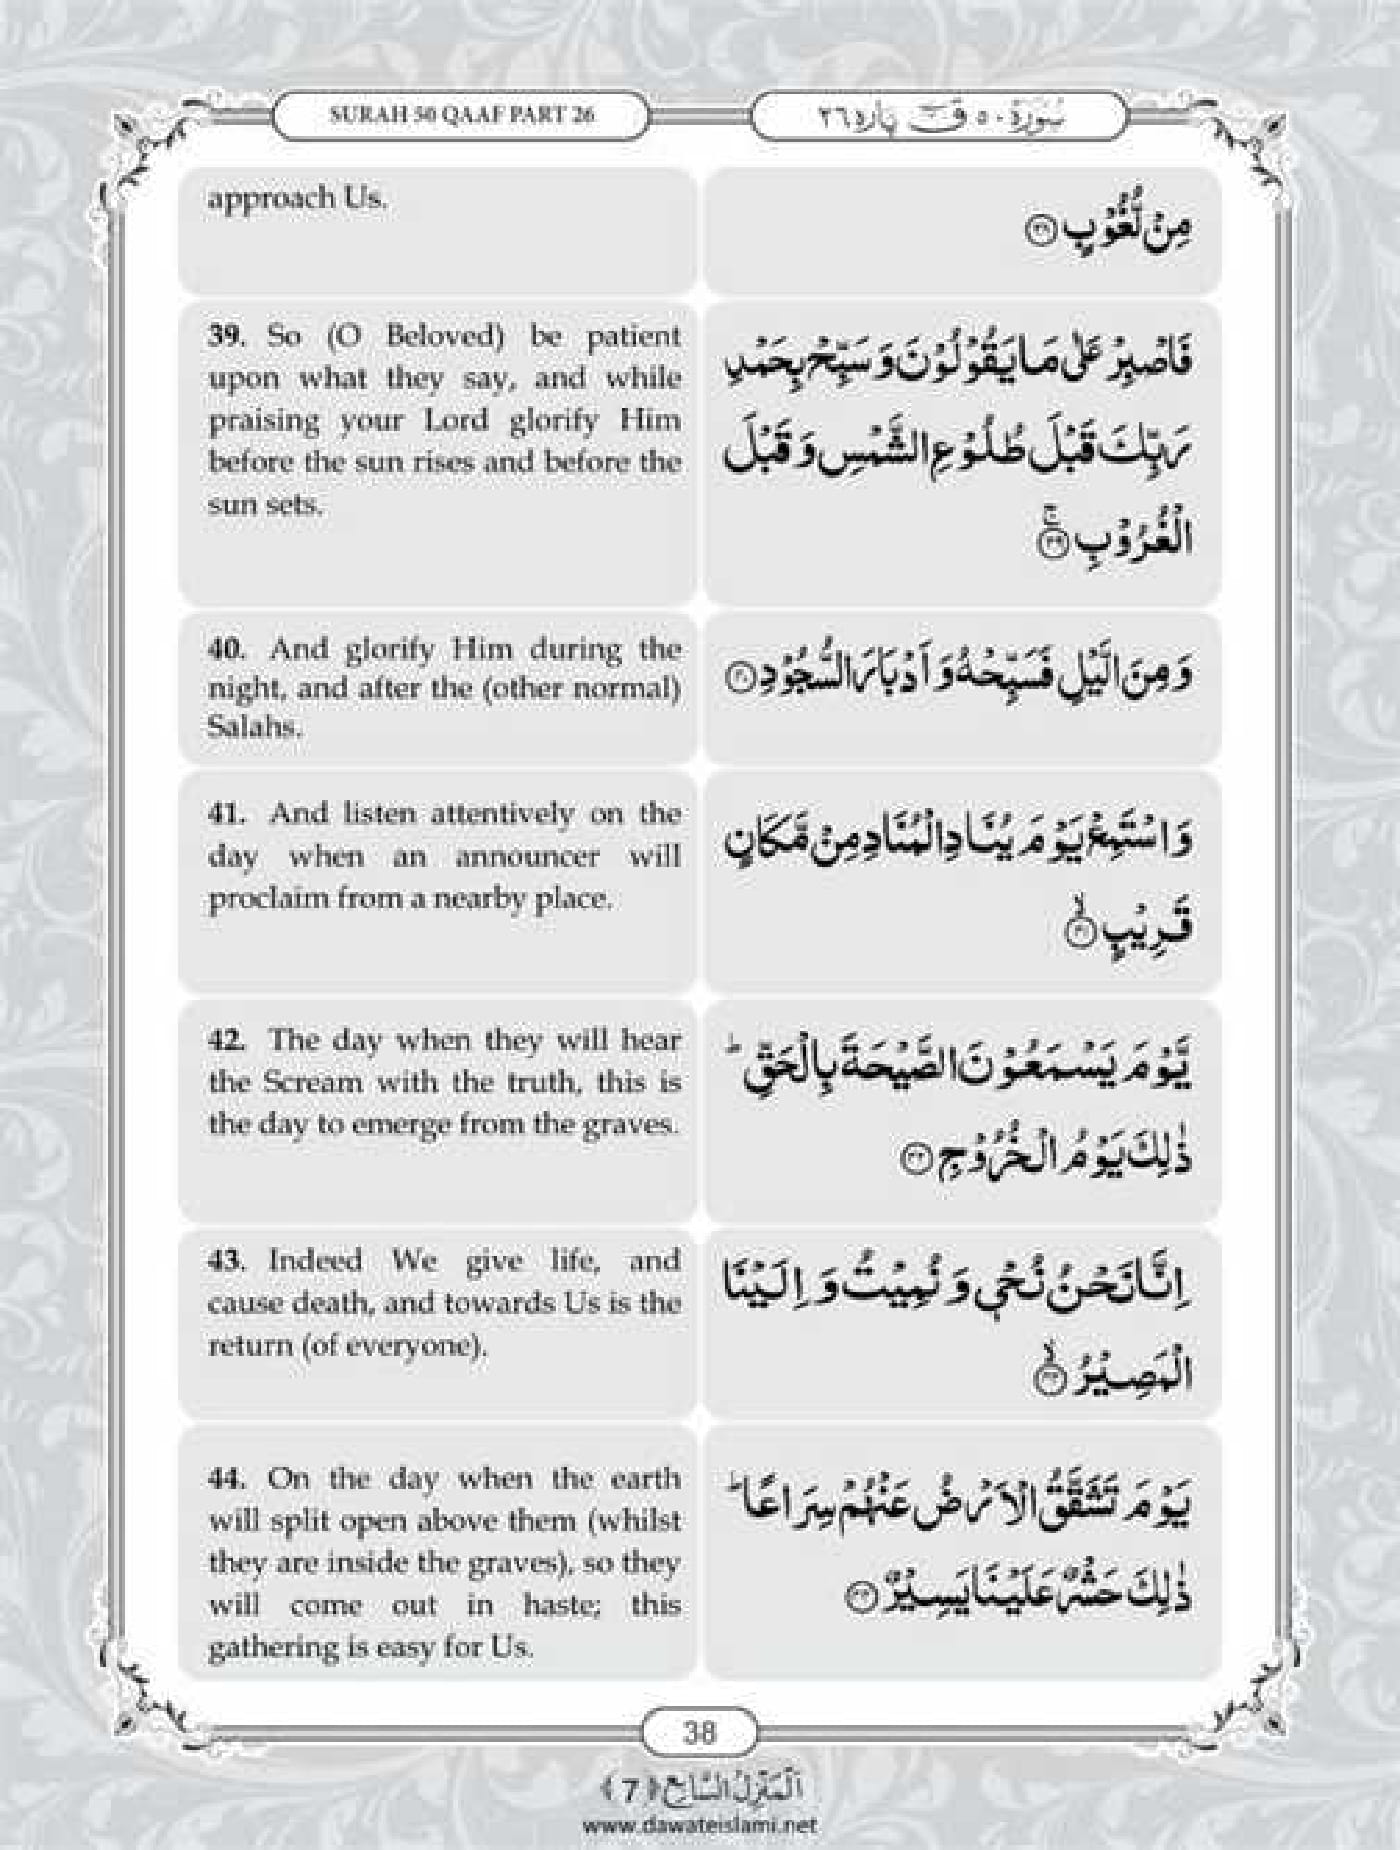 SURAH 50 QAAF PART 26
سُوْرَۃ ٥٠ قٓ پارہ ٢٦
approach Us.
مِنْ لُّغُوْبٍ ﴿۳۸﴾
39. So (O Beloved) be patient
upon what they say, and while
praising your Lord glorify Him
before the sun rises and before the
sun sets.
فَاصْبِرْ عَلٰى مَا يَقُوْلُوْنَ وَ سَبِّحْ بِحَمْدِ
رَبِّكَ قَبْلَ طُلُوْعِ الشَّمْسِ وَ قَبْلَ
الْغُرُوْبِ ۚ﴿۳۹﴾
40. And glorify Him during the
night, and after the (other normal)
Salahs.
وَ مِنَ الَّيْلِ فَسَبِّحْهُ وَ اَدْبَارَ السُّجُوْدِ ﴿۴۰﴾
41. And listen attentively on the
day when an announcer will
proclaim from a nearby place.
وَ اسْتَمِعْ يَوْمَ يُنَادِ الْمُنَادِ مِنْ مَّكَانٍ
قَرِيْبٍ ۙ﴿۴۱﴾
42. The day when they will hear
the Scream with the truth, this is
the day to emerge from the graves.
يَّوْمَ يَسْمَعُوْنَ الصَّيْحَةَ بِالْحَقِّ ؕ
ذٰلِكَ يَوْمُ الْخُرُوْجِ ﴿۴۲﴾
43. Indeed We give life, and
cause death, and towards Us is the
return (of everyone).
اِنَّا نَحْنُ نُحْيٖ وَ نُمِيْتُ وَ اِلَيْنَا
الْمَصِيْرُ ۙ﴿۴۳﴾
44. On the day when the earth
will split open above them (whilst
they are inside the graves), so they
will come out in haste; this
gathering is easy for Us.
يَوْمَ تَشَقَّقُ الْاَرْضُ عَنْهُمْ سِرَاعًا ؕ
ذٰلِكَ حَشْرٌ عَلَيْنَا يَسِيْرٌ ﴿۴۴﴾
38
اَلْمَنْزِلُ السَّابِع ﴿7﴾
www.dawateislami.net